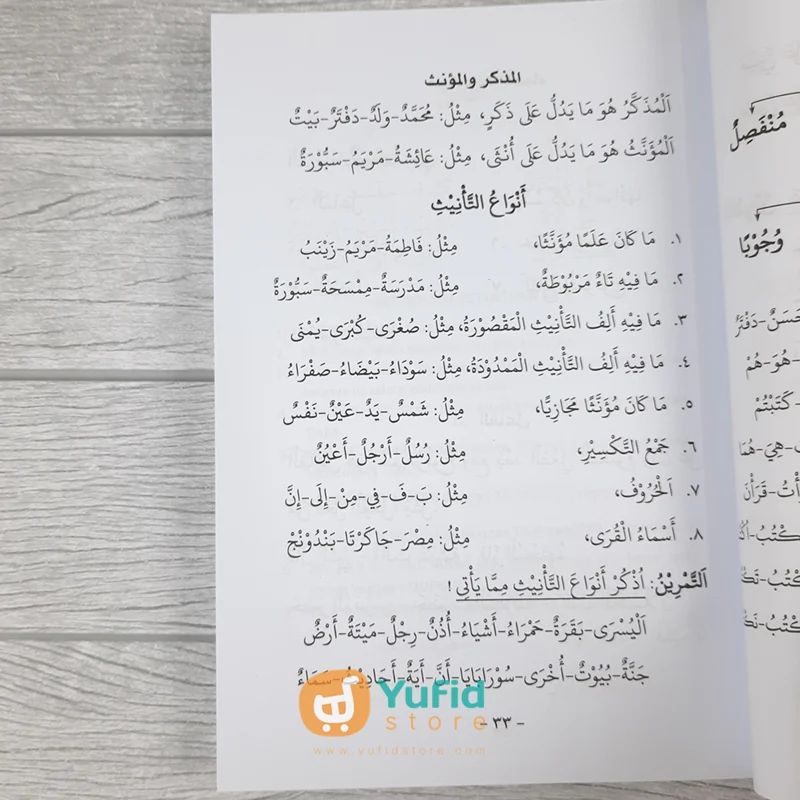 المذكر والمؤنث
اَلْمُذَكَّرُ هُوَ مَا يَدُلُّ عَلَى ذَكَرٍ، مِثْلُ: مُحَمَّدٌ-وَلَدٌ-دَفْتَرٌ-بَيْتٌ
اَلْمُؤَنَّثُ هُوَ مَا يَدُلُّ عَلَى أُنْثَى، مِثْلُ: عَائِشَةُ-مَرْيَمُ-سَبُّوْرَةٌ
أَنْوَاعُ التَّأْنِيْثِ
١. مَا كَانَ عَلَمًا مُؤَنَّثًا، مِثْلُ: فَاطِمَةُ-مَرْيَمُ-زَيْنَبُ
٢. مَا فِيْهِ تَاءٌ مَرْبُوْطَةٌ، مِثْلُ: مَدْرَسَةٌ-مِمْسَحَةٌ-سَبُّوْرَةٌ
٣. مَا فِيْهِ أَلِفُ التَّأْنِيْثِ الْمَقْصُوْرَةُ، مِثْلُ: صُغْرَى-كُبْرَى-يُمْنَى
٤. مَا فِيْهِ أَلِفُ التَّأْنِيْثِ الْمَمْدُوْدَةُ، مِثْلُ: سَوْدَاءُ-بَيْضَاءُ-صَفْرَاءُ
٥. مَا كَانَ مُؤَنَّثًا مَجَازِيًّا، مِثْلُ: شَمْسٌ-يَدٌ-عَيْنٌ-نَفْسٌ
٦. جَمْعُ التَّكْسِيْرِ، مِثْلُ: رُسُلٌ-أَرْجُلٌ-أَعْيُنٌ
٧. اَلْحُرُوْفُ، مِثْلُ: بَ-فَ-فِي-مِنْ-إِلَى-إِنَّ
٨. أَسْمَاءُ الْقُرَى، مِثْلُ: مِصْرَ-جَاكَرْتَا-بَنْدُوْنْجْ
اَلتَّمْرِيْنُ: اُذْكُرْ أَنْوَاعَ التَّأْنِيْثِ مِمَّا يَأْتِى !
اَلْيُسْرَى-بَقَرَةٌ-حَمْرَاءُ-أَشْيَاءُ-أُذُنٌ-رِجْلٌ-مَيْتَةٌ-أَرْضٌ
جَنَّةٌ-بُيُوْتٌ-أُخْرَى-سُوْرَابَايَا-أَنَّ-أَيَةٌ-أَحَادِيْثُ-سَمَاءٌ
- ٣٣ -
مُنْفَصِلٌ
وُجُوْبًا
هُوَ-هُمْ
كَتَبْتُمْ
هِيَ-هُمَا
قَرَأْنَ
Yufid
store
www.yufidstore.com